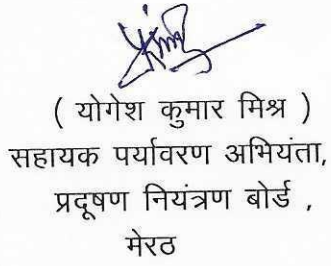 ( योगेश कुमार मिश्र )
सहायक पर्यावरण अभियंता,
प्रदूषण नियंत्रण बोर्ड ,
मेरठ